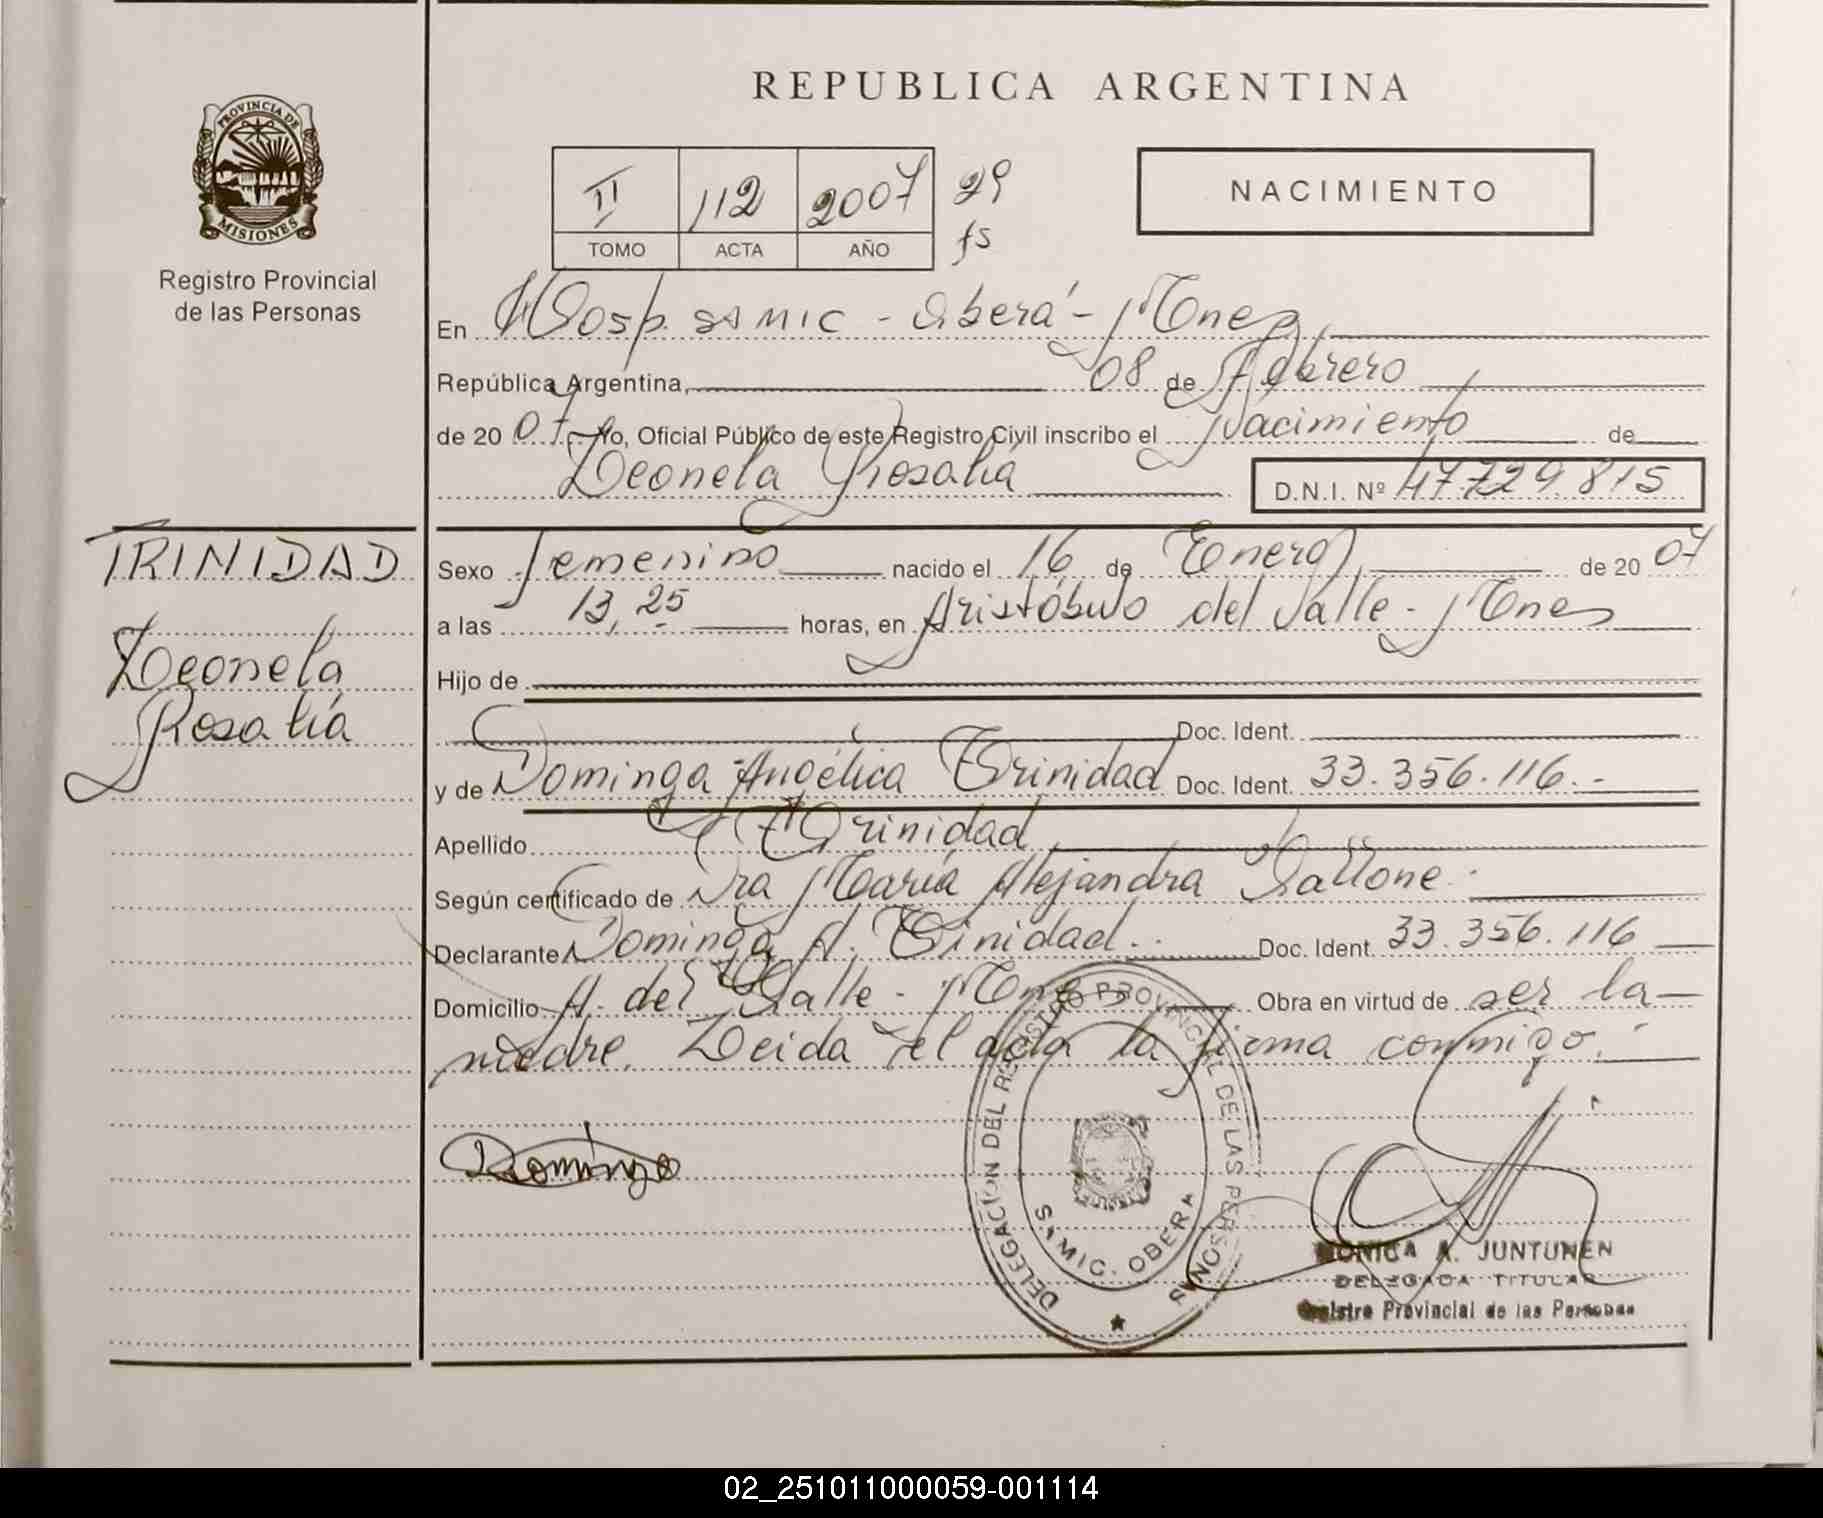 REPUBLICA ARGENTINA
PROVINCIA DE
MISIONES
Registro Provincial
de las Personas
II 112 2007 29
TOMO ACTA AÑO fs
NACIMIENTO
En Hosp. SAMIC - Oberá - Mnes
República Argentina, 08 de Febrero
de 20 07 Yo, Oficial Público de este Registro Civil inscribo el Nacimiento de
Leonela Rosalía D.N.I. Nº 47729815
TRINIDAD
Leonela
Rosalía
Sexo femenino nacido el 16 de Enero de 20 07
a las 13,25 horas, en Aristóbulo del Valle - Mnes
Hijo de
Doc. Ident.
y de Dominga Angélica Trinidad Doc. Ident. 33.356.116.-
Apellido Trinidad
Según certificado de Dra María Alejandra
Declarante Dominga A. Trinidad.. Doc. Ident. 33.356.116
Domicilio A. del Valle - Mnes Obra en virtud de ser la
madre. Leida el acta la firma conmigo.-
Domingo
DELEGACION DEL REGISTRO PROVINCIAL DE LAS PERSONAS
SAMIC. OBERA
MONICA A. JUNTUNEN
DELEGADA TITULAR
Registro Provincial de las Personas
02_251011000059-001114